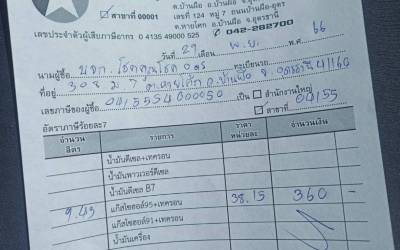 ต.บ้านผือ อ.บ้านผือ จ.อุดรธานี
สาขาที่ 00001 เลขที่ 124 หมู่ 7 ถนนบ้านผือ-อุดร
ต.หายโศก อ.บ้านผือ จ.อุดรธานี
เลขประจำตัวผู้เสียภาษีอากร 0 4135 49000 525 042-282700
วันที่ 29 เดือน พ.ย. พ.ศ. 66
นามผู้ซื้อ นจก. โชคคูณโชค ทะเบียนรถ
ที่อยู่ 308 ม.7 ต.หายโศก อ.บ้านผือ จ.อุดรธานี 41160
เลขภาษีของผู้ซื้อ เป็น สำนักงานใหญ่
สาขาที่
อัตราภาษีร้อยละ7
จำนวนลิตร รายการ ราคาหน่วยละ จำนวนเงิน
น้ำมันดีเซล+เทครอน
น้ำมันพาวเวอร์ดีเซล
น้ำมันดีเซล B7
9.43 แก๊สโซฮอล์95+เทครอน 38.15 360 -
แก๊สโซฮอล์91+เทครอน
น้ำมันเครื่อง